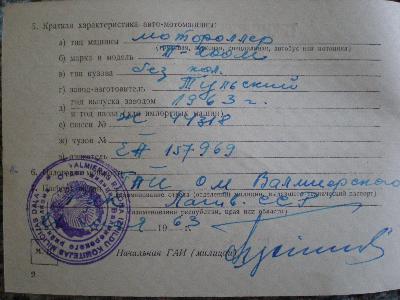 5. Краткая характеристика авто-мотомашины:
а) тип машины мотороллер
(грузовая, легковая, специальная, автобус или мотоцикл)
б) марка и модель Т-200М
в) тип кузова без кол.
г) завод-изготовитель Тульский
д) год выпуска заводом 1963 г.
и год (для импортных машин)
е) шасси №
ж) кузов №
ЕА 157969
6. ГАИ О.М. Валмиерского
(наименование органа (отделения) милиции, выдавшего технический паспорт)
Латв. ССР
(наименование республики, края или области)
63 г.
М. П.
Начальник ГАИ (милиции)
9
VALMIERAS RAJONA IZPILDU KOMITEJAS MILICIJAS DAĻA